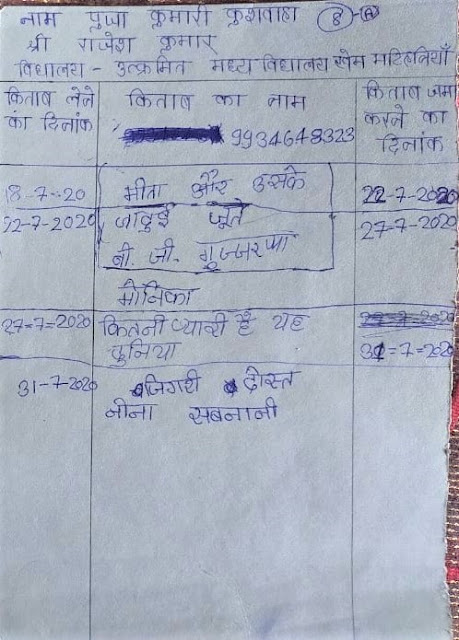 नाम पुजा कुमारी कुशवाहा 8-A
श्री राजेश कुमार
विद्यालय - उत्क्रमित मध्य विद्यालय खेम मटिहनियाँ
किताब लेने का दिनांक
किताब का नाम
9934648323
किताब जमा करने का दिनांक
18-7-20 मीता और उसके 22-7-2020
22-7-2020 जादुई जूते 27-7-2020
बी. जी. गुज्जरप्पा
मोनिका
27=7=2020 कितनी प्यारी है यह
दुनिया 31=7=2020
31-7-2020 जिगरी दोस्त
नीना सबनानी